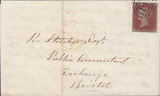 Fletcher Esqr
Public Accountant
Exchange
Bristol